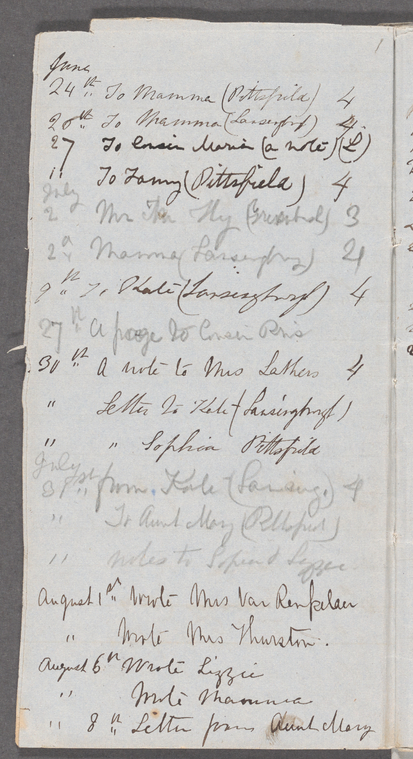 1
June
24th " To Mamma (Pittsfield) 4
28th " To Mamma (Lansingburgh) 4.
27 To Cousin Maria (a note) (L)
" To Fanny (Pittsfield) 4
July
2 Mr Ths Fly (Greenbush) 3
2d " Mamma (Lansingburgh) 24
9th " To Kate (Lansingburgh) 4
27th " A page to Cousin Pris
30 "th A note to Mrs Lathers 4
" Letter to Kate (Lansingburgh)
" " Sophia Pittsfield
July
31st " from Kate (Lansing.) 4
" To Aunt Mary (Pittsfield)
" notes to Sophia & Lizzie
August 1st " Wrote Mrs Van Renselaer
" Wrote Mrs Thurston.
August 6th Wrote Lizzie
" Wrote Mamma
" 8th Letter from Aunt Mary